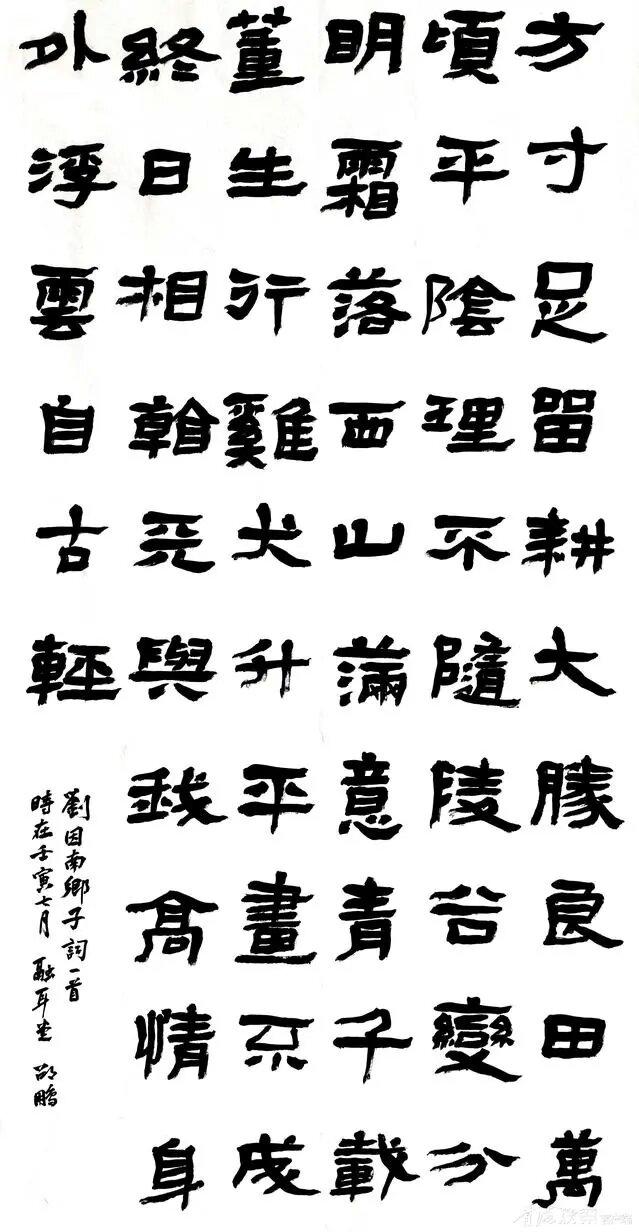 方寸足留耕大勝良田萬
頃平陰理不隨陵谷變分
明霜落西山滿意青千載
董生行雞犬升平畫不成
終日相看天與我高情身
外浮雲自古輕
劉因南鄉子詞一首
時在壬寅七月 融耳堂 邵鵬